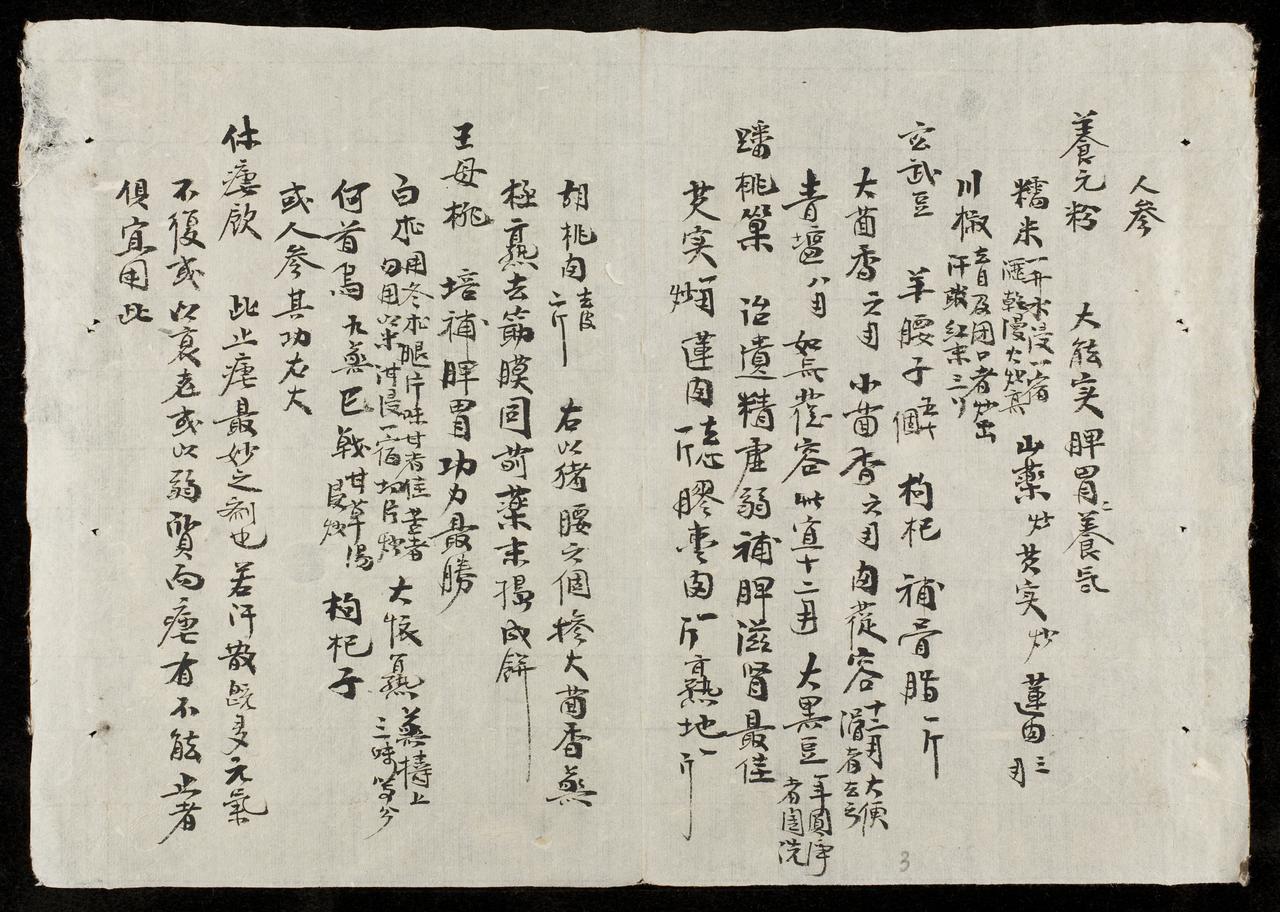 人參
養元粉　大能实脾胃養氣
糯米一升水浸一宿瀝乾慢火炒熟　山藥炒芡实炒蓮肉三両
川椒去目及閉口者炒出汗取紅末三分
玄武豆　羊腰子五十個　枸杞　補骨脂一斤
大茴香六両　小茴香六両　肉蓯容十二両大便滑者去之
青塩八両　如無蓯容此宜十二両　大黒豆一斗圓淨者洗
蟠桃菓　治遺精虛弱補脾滋腎最佳
芡实一斤炒蓮肉去心一斤膠枣肉一斤熟地一斤
胡桃肉去皮二斤　右以猪腰六個摻大茴香蒸
極熟去筋膜同前薬末搗成餅
王母桃　培補脾胃功力最勝
白朮用冬朮腿片味甘者佳苦者勿用以米泔浸一宿切片炒　大何首烏九蒸巴戟甘草湯浸炒　枸杞子
或人參其功尤大
休瘧飲　此止瘧最妙之剤也　若汗散既多元氣
不復或以衰老或以弱質而瘧有不能止者
俱宜用此
3